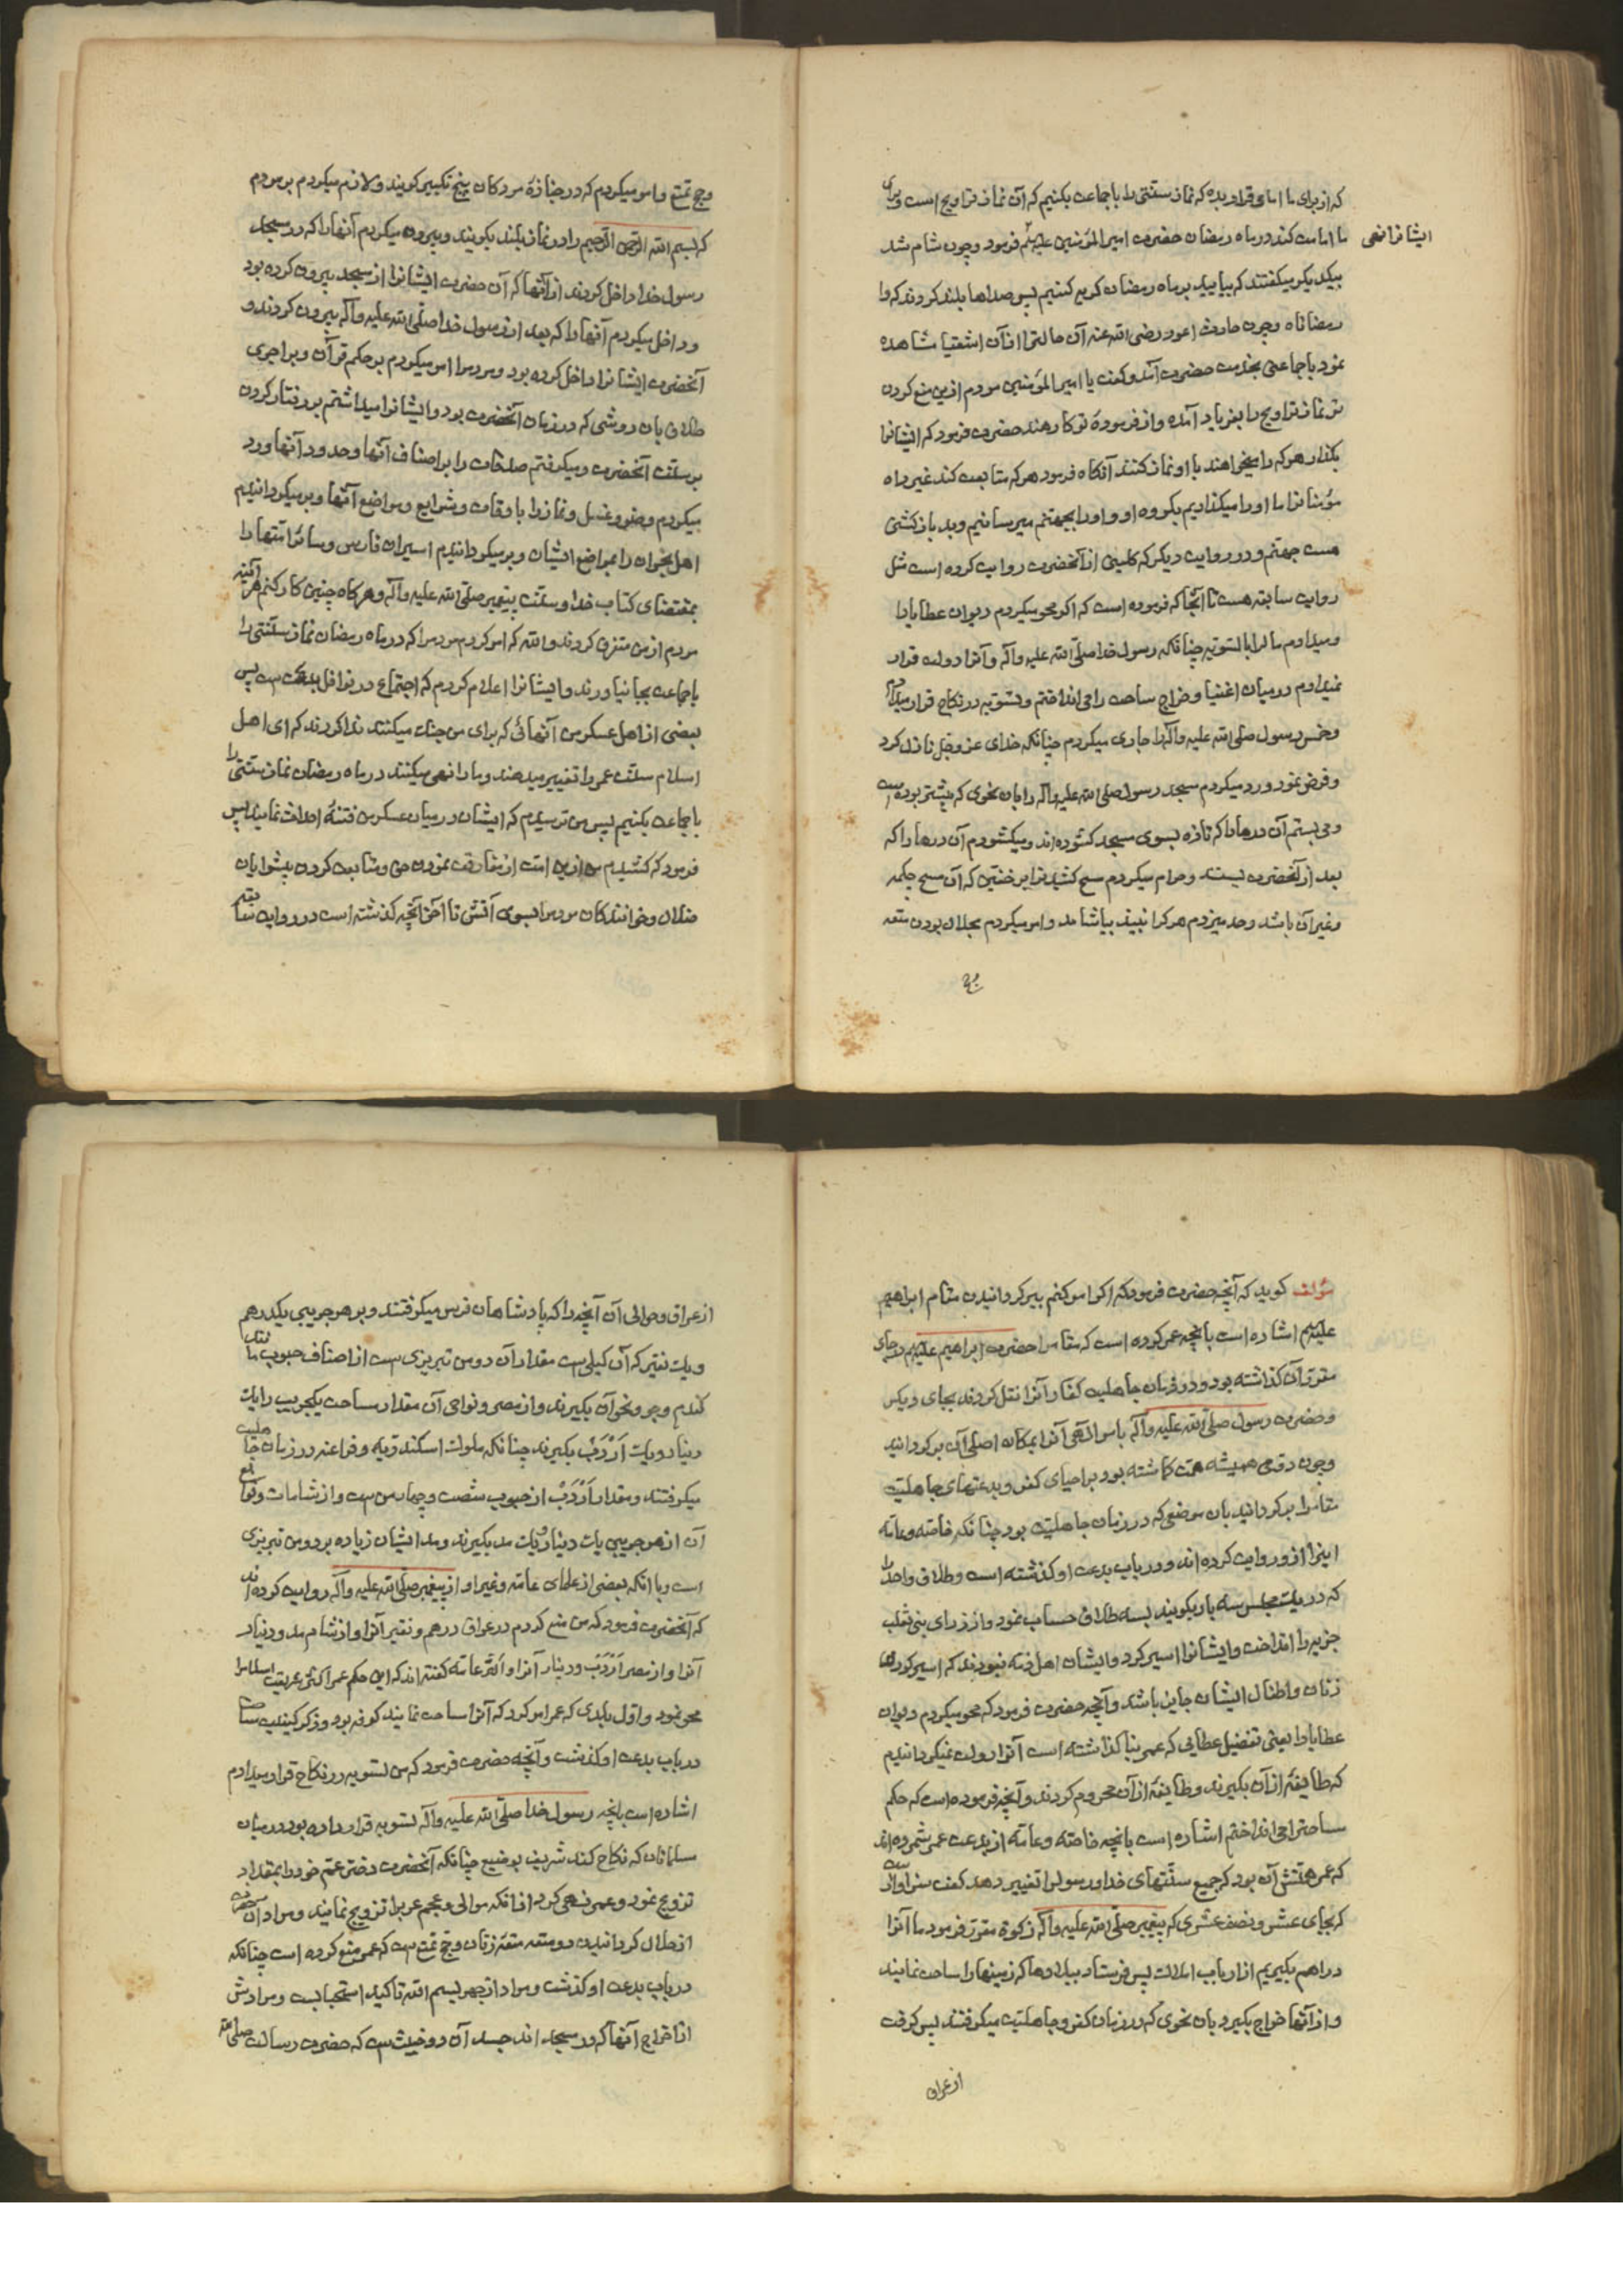 که از برای ما امامی قرار بده که نماز سنتی را با جماعت بکنیم که آن نماز تراویح است و برای
ما امامت کند در ماه رمضان حضرت امیرالمؤمنین علیه السلام فرمود و چون شام شد
ایشانرا نهی
بیکدیگر میگفتند که بیایید بر ماه رمضان گریه کنیم پس صداها بلند کردند که وا
رمضاناه و چون حارث اعور رضی الله عنه آن حالترا از آن اشقیا مشاهده
نمود با جماعتی بخدمت حضرت آمد و گفت یا امیر المؤمنین مردم ازین منع کردن
نماز تراویح را بفریاد آمده و از فرمودهٔ تو کارهند حضرت فرمود که ایشانرا
بگذار هر که را میخواهند با او نماز کنند آنگاه فرمود هر که متابعت کند غیر راه
مؤمنانرا ما او را میگذاریم بگروه او و او را بجهنم میرسانیم و بد بازگشتی
هست جهنم و در روایت دیگر که کلینی از آنحضرت روایت کرده است مثل
روایت سابقه هست تا آنجا که فرموده است که اگر محو میکردم دیوان عطایا را
و میدادم مالرا بالسویه چنانکه رسول خدا صلی الله علیه وآله و آنرا دولت قرار
نمیدادم در میان اغنیا و خراج ساحت را می انداختم و تسویه در نکاح قرار میدادم
و خمس رسول صلی الله علیه وآله را جاری میکردم چنانکه خدای عز و جل نازل کرد
و فرض نمود و رد میکردم مسجد رسول صلی الله علیه وآله را بان نحوی که پیشتر بوده است
و می بستم آن درها را که تازه بسوی مسجد گشوده اند و میگشودم آن درها را که
بعد از آنحضرت بستند و حرام میکردم مسح کشیدنرا بر خفین که آن مسح چکمه
و غیر آن باشد و حد میزدم هر که را نبیذ بیاشامد و امر میکردم بحلال بودن متعه
وحج
وحج تمتع و امر میکردم که در جنازهٔ مردگان پنج تکبیر گویند و لازم میکردم بر مردم
که بسم الله الرحمن الرحیم را در نماز بلند بگویند و بیرون میکردم آنها را که در مسجد
رسول خدا داخل کردند از آنها که آن حضرت ایشانرا از مسجد بیرون کرده بود
و داخل میکردم آنها را که بعد از رسول خدا صلی الله علیه وآله بیرون کردند و
آنحضرت ایشانرا داخل کرده بود و مردمرا امر میکردم بر حکم قرآن و بر اجرای
طلاق بان روشی که در زمان آنحضرت بود و ایشانرا میداشتم بر رفتار کردن
بر سنت آنحضرت و میگرفتم صدقات را بر اصناف آنها و حدود آنها و رد
میکردم وضو و غسل و نماز را باوقات و شرایع و مواضع آنها و برمیگردانیدم
اهل نجران را بمواضع ایشان و برمیگردانیدم اسیران فارس و سائر امتها را
بمقتضای کتاب خدا و سنت پیغمبر صلی الله علیه وآله و هر گاه چنین کار کنم هر آینه
مردم از من متفرق گردند والله که امر کردم مردمرا که در ماه رمضان نماز سنتی را
با جماعت بجا نیاورند و ایشانرا اعلام کردم که اجتماع در نوافل بدعت است پس
بعضی از اهل عسکر من آنهائی که برای من جنگ میکنند ندا کردند که ای اهل
اسلام سنت عمر را تغییر میدهند و ما را نهی میکنند در ماه رمضان نماز سنتی را
با جماعت بکنیم پس من ترسیدم که ایشان در میان عسکر من فتنهٔ احداث نمایند پس
فرمود که کشیدم من ازین امت از مفارقت نمودن من و متابعت کردن پیشوایان
ضلال و خوانندگان مردمرا بسوی آتش تا آخر آنچه گذشته است در روایت سابقه
مؤلف گوید که آنچه حضرت فرمود که اگر امر کنم ببرگردانیدن مقام ابراهیم
علیه السلام اشاره است بانچه عمر کرده است که مقامرا حضرت ابراهیم علیه السلام در جای
مقرر آن گذاشته بود و در زمان جاهلیت کفار آنرا نقل کردند بجای دیگر
و حضرت رسول صلی الله علیه وآله بامر الهی آنرا بمکان اصلی آن برگردانید
و چون دویمی همیشه همت گماشته بود بر احیای کفر و بدعتهای جاهلیت
مقامرا برگردانید بان موضعی که در زمان جاهلیت بود چنانکه خاصه و عامه
اینرا از و روایت کرده اند و در باب بدعت او گذشته است و طلاق واحد را
که در یک مجلس سه بار بگویند بسه طلاق حساب نمود و از ذرای بنی تغلب
جزیه را انداخت و ایشانرا اسیر کرد و ایشان اهل ذمه نبودند که اسیر کردن
زنان و اطفال ایشان جایز باشد و آنچه حضرت فرمود که محو میکردم دیوان
عطایا را یعنی تفضیل عطایی که عمر بنا گذاشته است آنرا دولت نمیگردانیدم
که طایفهٔ از آن بگیرند و طایفهٔ از آن محروم گردند و آنچه فرموده است که حکم
مساحترا می انداختم اشاره است بانچه خاصه و عامه از بدعت عمر شمرده اند
که عمر همتش آن بود که جمیع سنتهای خدا و رسولرا تغییر دهد گفت سزاوار است
که بجای عشر و نصف عشری که پیغمبر صلی الله علیه وآله زکوة مقرر فرمود ما آنرا
دراهم بگیریم از ارباب املاک پس فرستاد ببلادها که زمینها را مساحت نمایند
و از آنها خراج بگیرد بان نحوی که در زمان کفر و جاهلیت میگرفتند پس گرفت
از عراق
از عراق و حوالی آن آنچه را که پادشاهان فرس میگرفتند و بر هر جریبی یکدرهم
و یک قفیز که آن کیلی است مقدار آن دو من تبریزی است از اصناف حبوب مانند
گندم و جو و نحو آن بگیرند و از مصر و نواحی آن مقدار مساحت یکجریب را یک
دینار و یک اَرْدَبّ بگیرند چنانکه ملوک اسکندریه و فراعنه در زمان جاهلیت
میگرفتند و مقدار اَرْدَبّ از حبوب شصت و چهار من است و از شامات و توابع
آن از هر جریبی یک دینار و یک مد بگیرند و مد ایشان زیاده بر دو من تبریزی
است و با انکه بعضی از علمای عامه و غیر او از پیغمبر صلی الله علیه وآله روایت کرده اند
که آنحضرت فرمود که من منع کردم در عراق درهم و قفیر آنرا و از شام مد و دینار
آنرا و از مصر اَرْدَبّ و دینار آنرا و اکثر عامه گفته اند که این حکم عمر اکثر شریعت اسلامرا
محو نمود و اول بلدی که عمر امر کرد که آنرا مساحت نمایند کوفه بود و ذکر کیفیت مساحت
در باب بدعت او گذشت و آنچه حضرت فرمود که من تسویه در نکاح قرار میدادم
اشاره است بانچه رسول خدا صلی الله علیه وآله تسویه قرار داده بود در میان
مسلمانان که نکاح کند شریف بوضیع چنانکه آنحضرت دختر عم خود را بمقداد
تزویج نمود و عمر نهی کرد از انکه موالی و عجم عربرا تزویج نمایند و مراد آن حضرت
از حلال گردانیدن دو متعه متعهٔ زنان و حج تمتع است که عمر منع کرده است چنانکه
در باب بدعت او گذشت و مراد از جهر بسم الله تاکید استحبابست و مرادش
از اخراج آنها که در مسجد اند جسد آن دو خبیث است که حضرت رسالت صلی الله